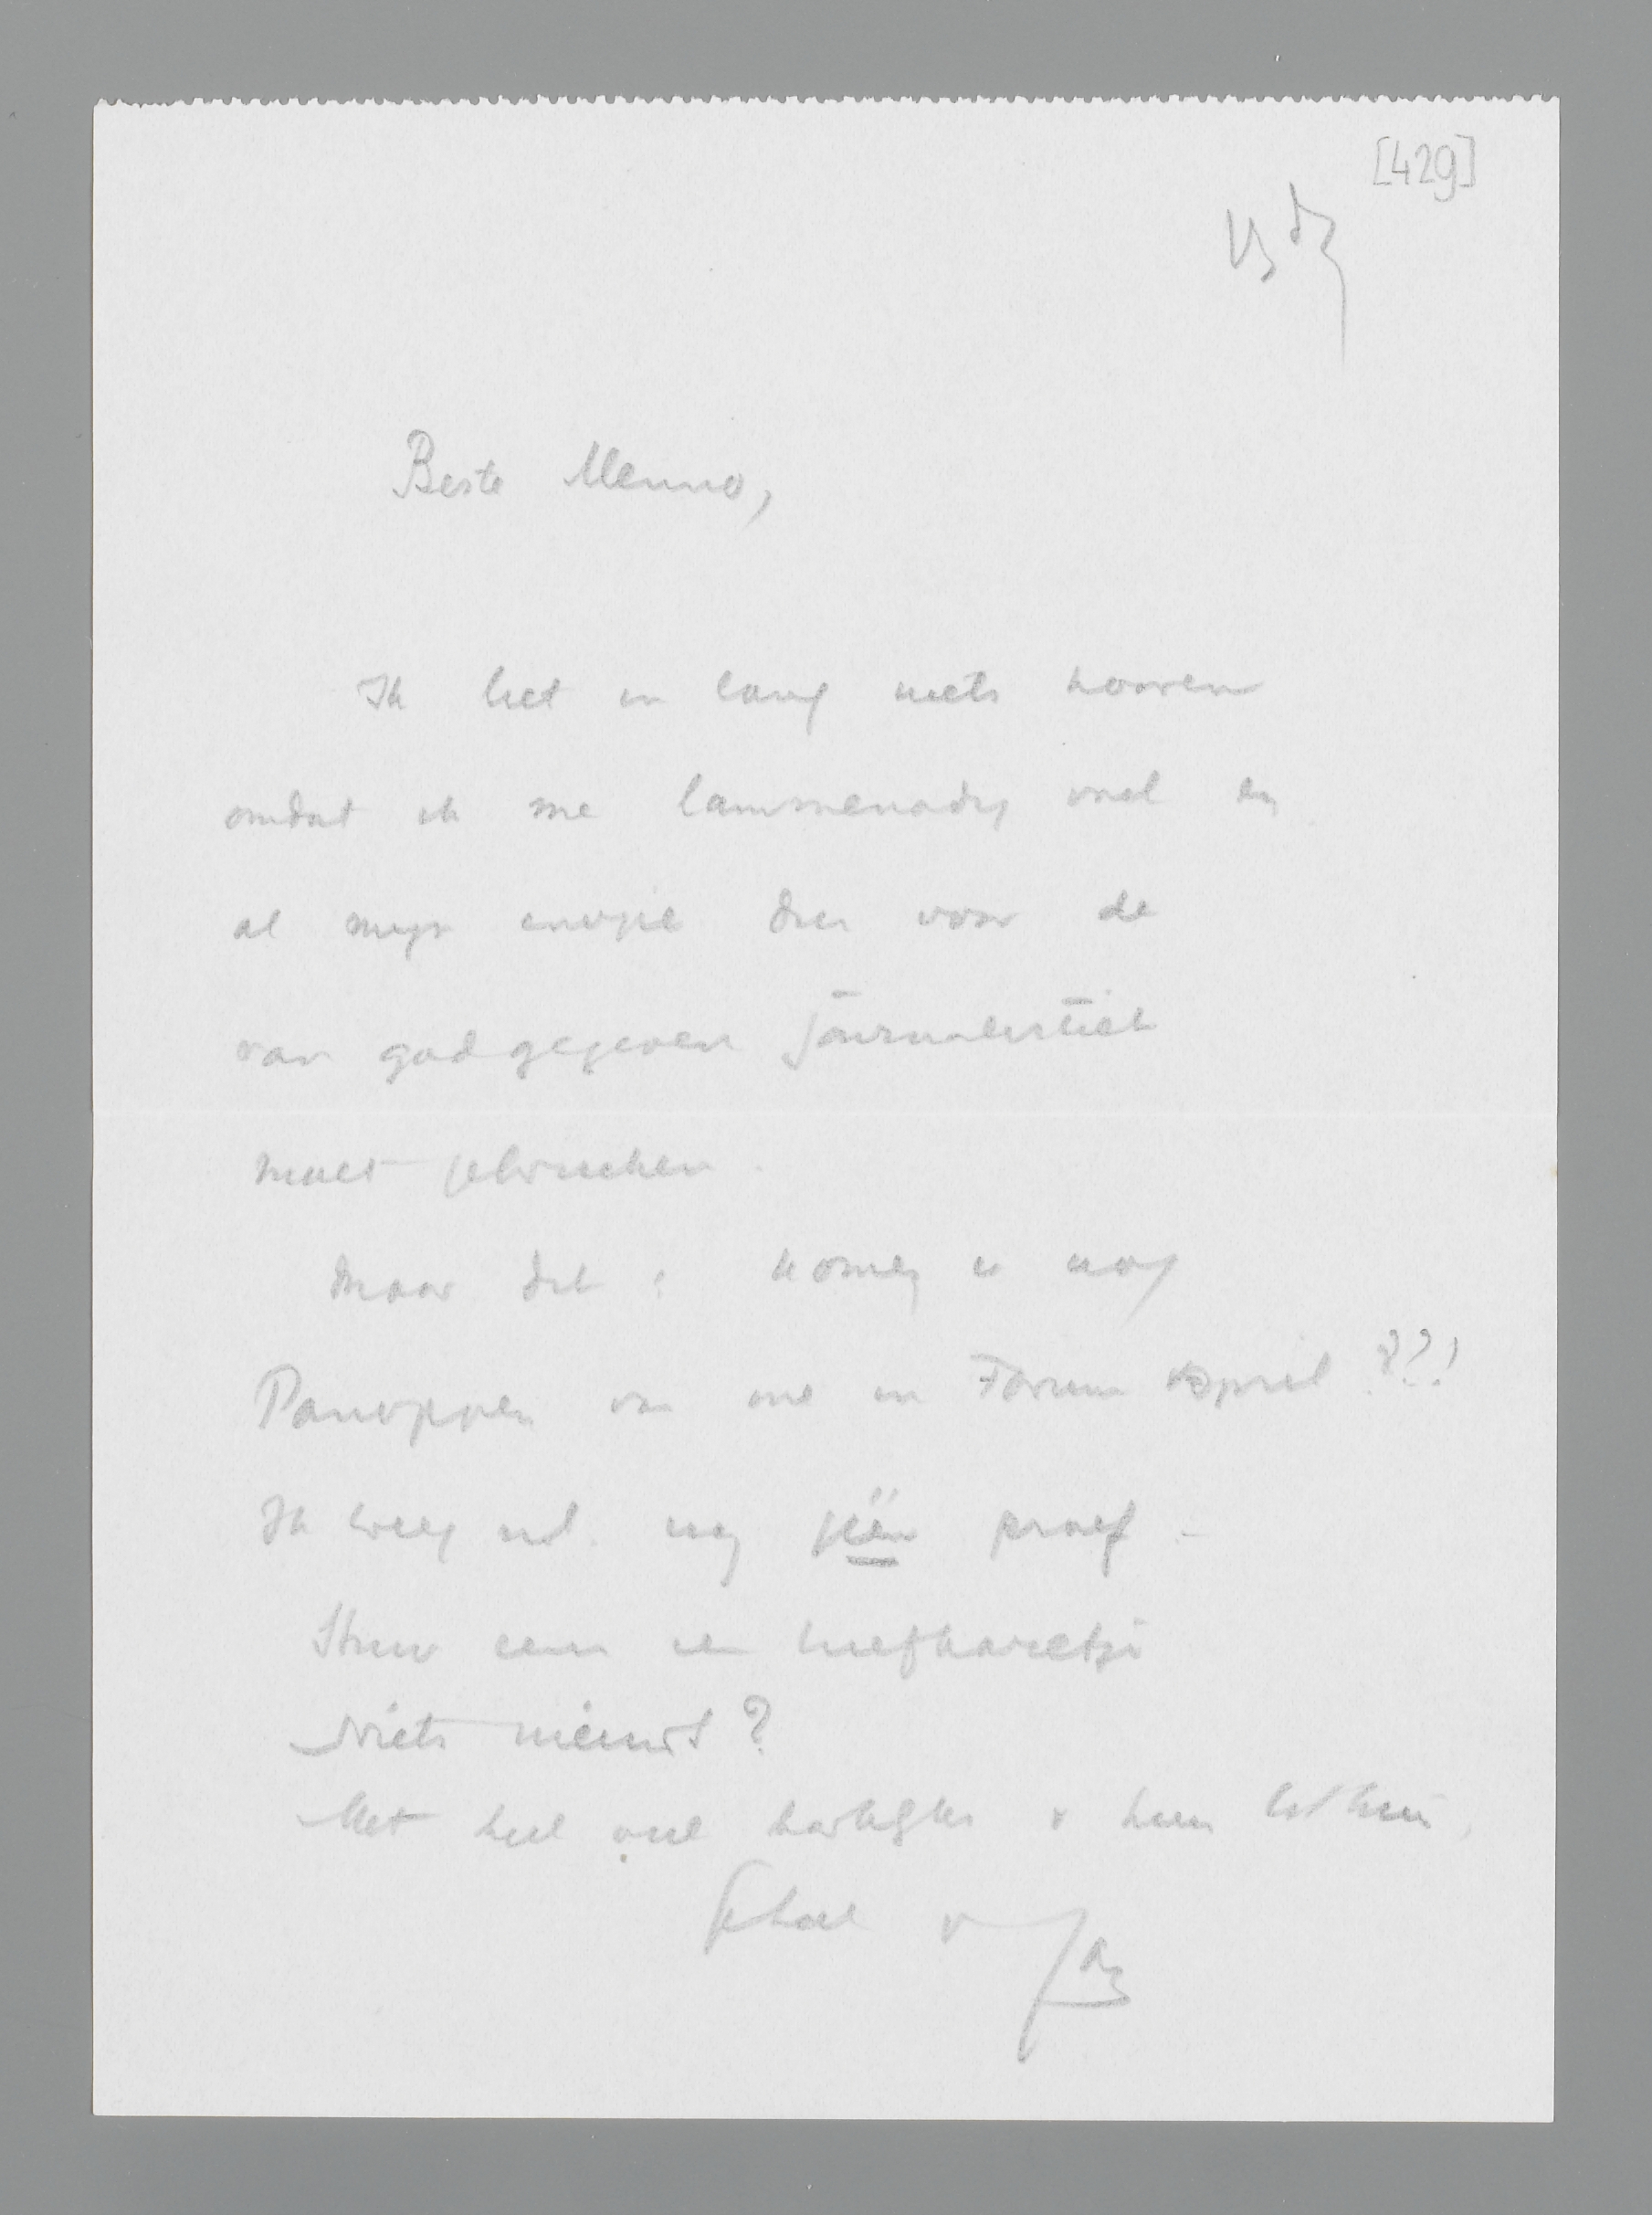 [429]
Beste Menno,
Ik liet in lang niets hooren
omdat ik me lammenadig voel en
al mijn energie die voor de
van god gegeven journalistiek
moet gebruiken.
Maar dit: komen er nog
Panoppen van me in Forum April ??!
Ik kreeg nl. nog géén proef -
Stuur eens een briefkaartje
Niets nieuws?
Met heel veel hartelijks v. huis tot huis,
geheel v
Jan